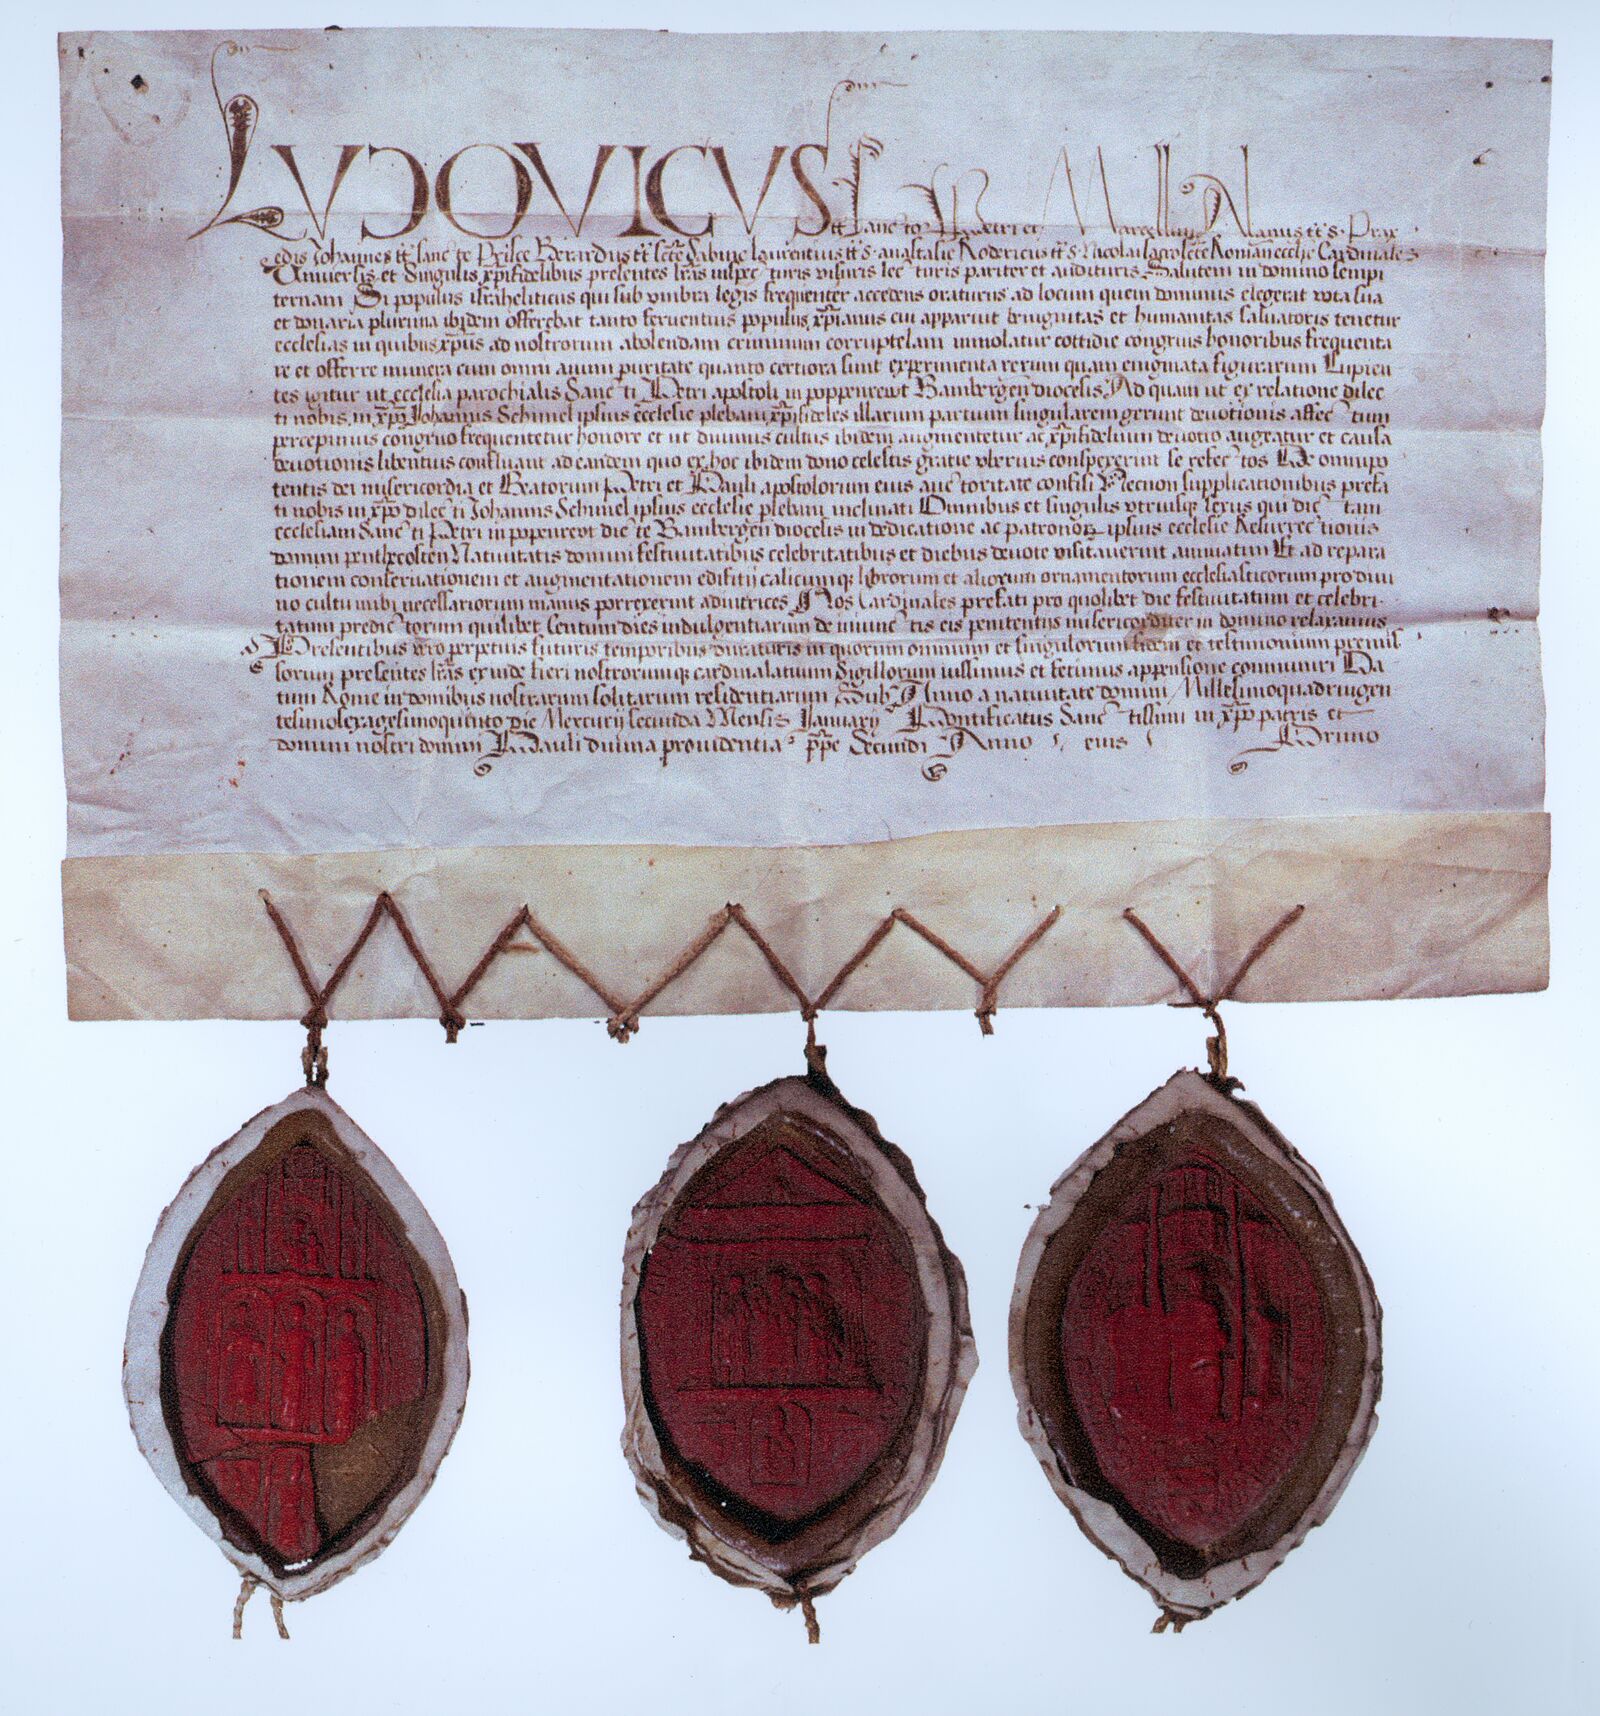 LUDOVICUS
tt̄ Sanctorum Petri et Marcellini Alanus tt̄ s. Prax
edis Johannes tt̄ sancte Prisce Berardus tt̄ scte Sabine Laurentius tt̄ s. anastasie Rodericus tt̄ s. Nicolai sacrosc̄te Romane ecclie Cardinales
Universis et Singulis xp̄ifidelibus presentes lr̄as inspecturis visuris lecturis pariter et audituris Salutem in domino sempi
ternam Si populus israheliticus qui sub umbra legis frequenter accedens oraturus ad locum quem dominus elegerat vota sua
et donaria plurima ibidem offerebat tanto ferventius populus xp̄ianus cui apparuit benignitas et humanitas salvatoris tenetur
ecclesias in quibus xp̄us ad nostrorum abolendam criminum corruptelam immolatur cottidie congruis honoribus frequenta
re et offerre munera cum omni animi puritate quanto certiora sunt experimenta rerum quam enigmata figurarum Cupien
tes igitur ut ecclesia parochialis Sancti Petri apostoli in poppenrewt Bambergen̄ diocesis Ad quam ut ex relatione dilec
ti nobis in xp̄o Johannis Schimel ipsius ecclesie plebani xp̄ifideles illarum partium singularem gerunt devotionis affectum
percepimus congruo frequentetur honore et ut divinus cultus ibidem augmentetur ac xp̄ifidelium devotio augeatur et causa
devotionis libentius confluant ad eandem quo ex hoc ibidem dono celestis gratie uberius conspexerint se refectos De omnipo
tentis dei misericordia et Beatorum Petri et Pauli apostolorum eius auctoritate confisi Necnon supplicationibus prefa
ti nobis in xp̄o dilecti Johannis Schimel ipsius ecclesie plebani inclinati Omnibus et singulis utriusque sexus qui dictam
ecclesiam Sancti Petri in popenrewt dicte Bambergen̄ diocesis in dedicatione ac patronorꝝ ipsius ecclesie Resurrectionis
domini penthecosten Nativitatis domini festivitatibus celebritatibus et diebus devote visitaverint annuatim Et ad repara
tionem conservationem et augmentationem edifitii calicumq̄ librorum et aliorum ornamentorum ecclesiasticorum pro divi
no cultu inibi necessariorum manus porrexerint adiutrices Nos Cardinales prefati pro quolibet die festivitatum et celebri
tatum predictorum quilibet Centum dies indulgentiarum de iniunctis eis penitentiis misericorditer in domino relaxamus
Presentibus vero perpetuis futuris temporibus duraturis in quorum omnium et singulorum fidem et testimonium premis
sorum presentes lr̄as exinde fieri nostrorumq̄ cardinalatuum Sigillorum iussimus et fecimus appensione communiri Da
tum Rome in domibus nostrarum solitarum residentiarum Sub Anno a nativitate domini Millesimoquadringen
tesimosexagesimoquinto die Mercurij secunda Mensis January Pontificatus Sanctissimi in xp̄o patris et
domini nostri domini Pauli divina providentia pp̄e Secundi Anno eius Primo